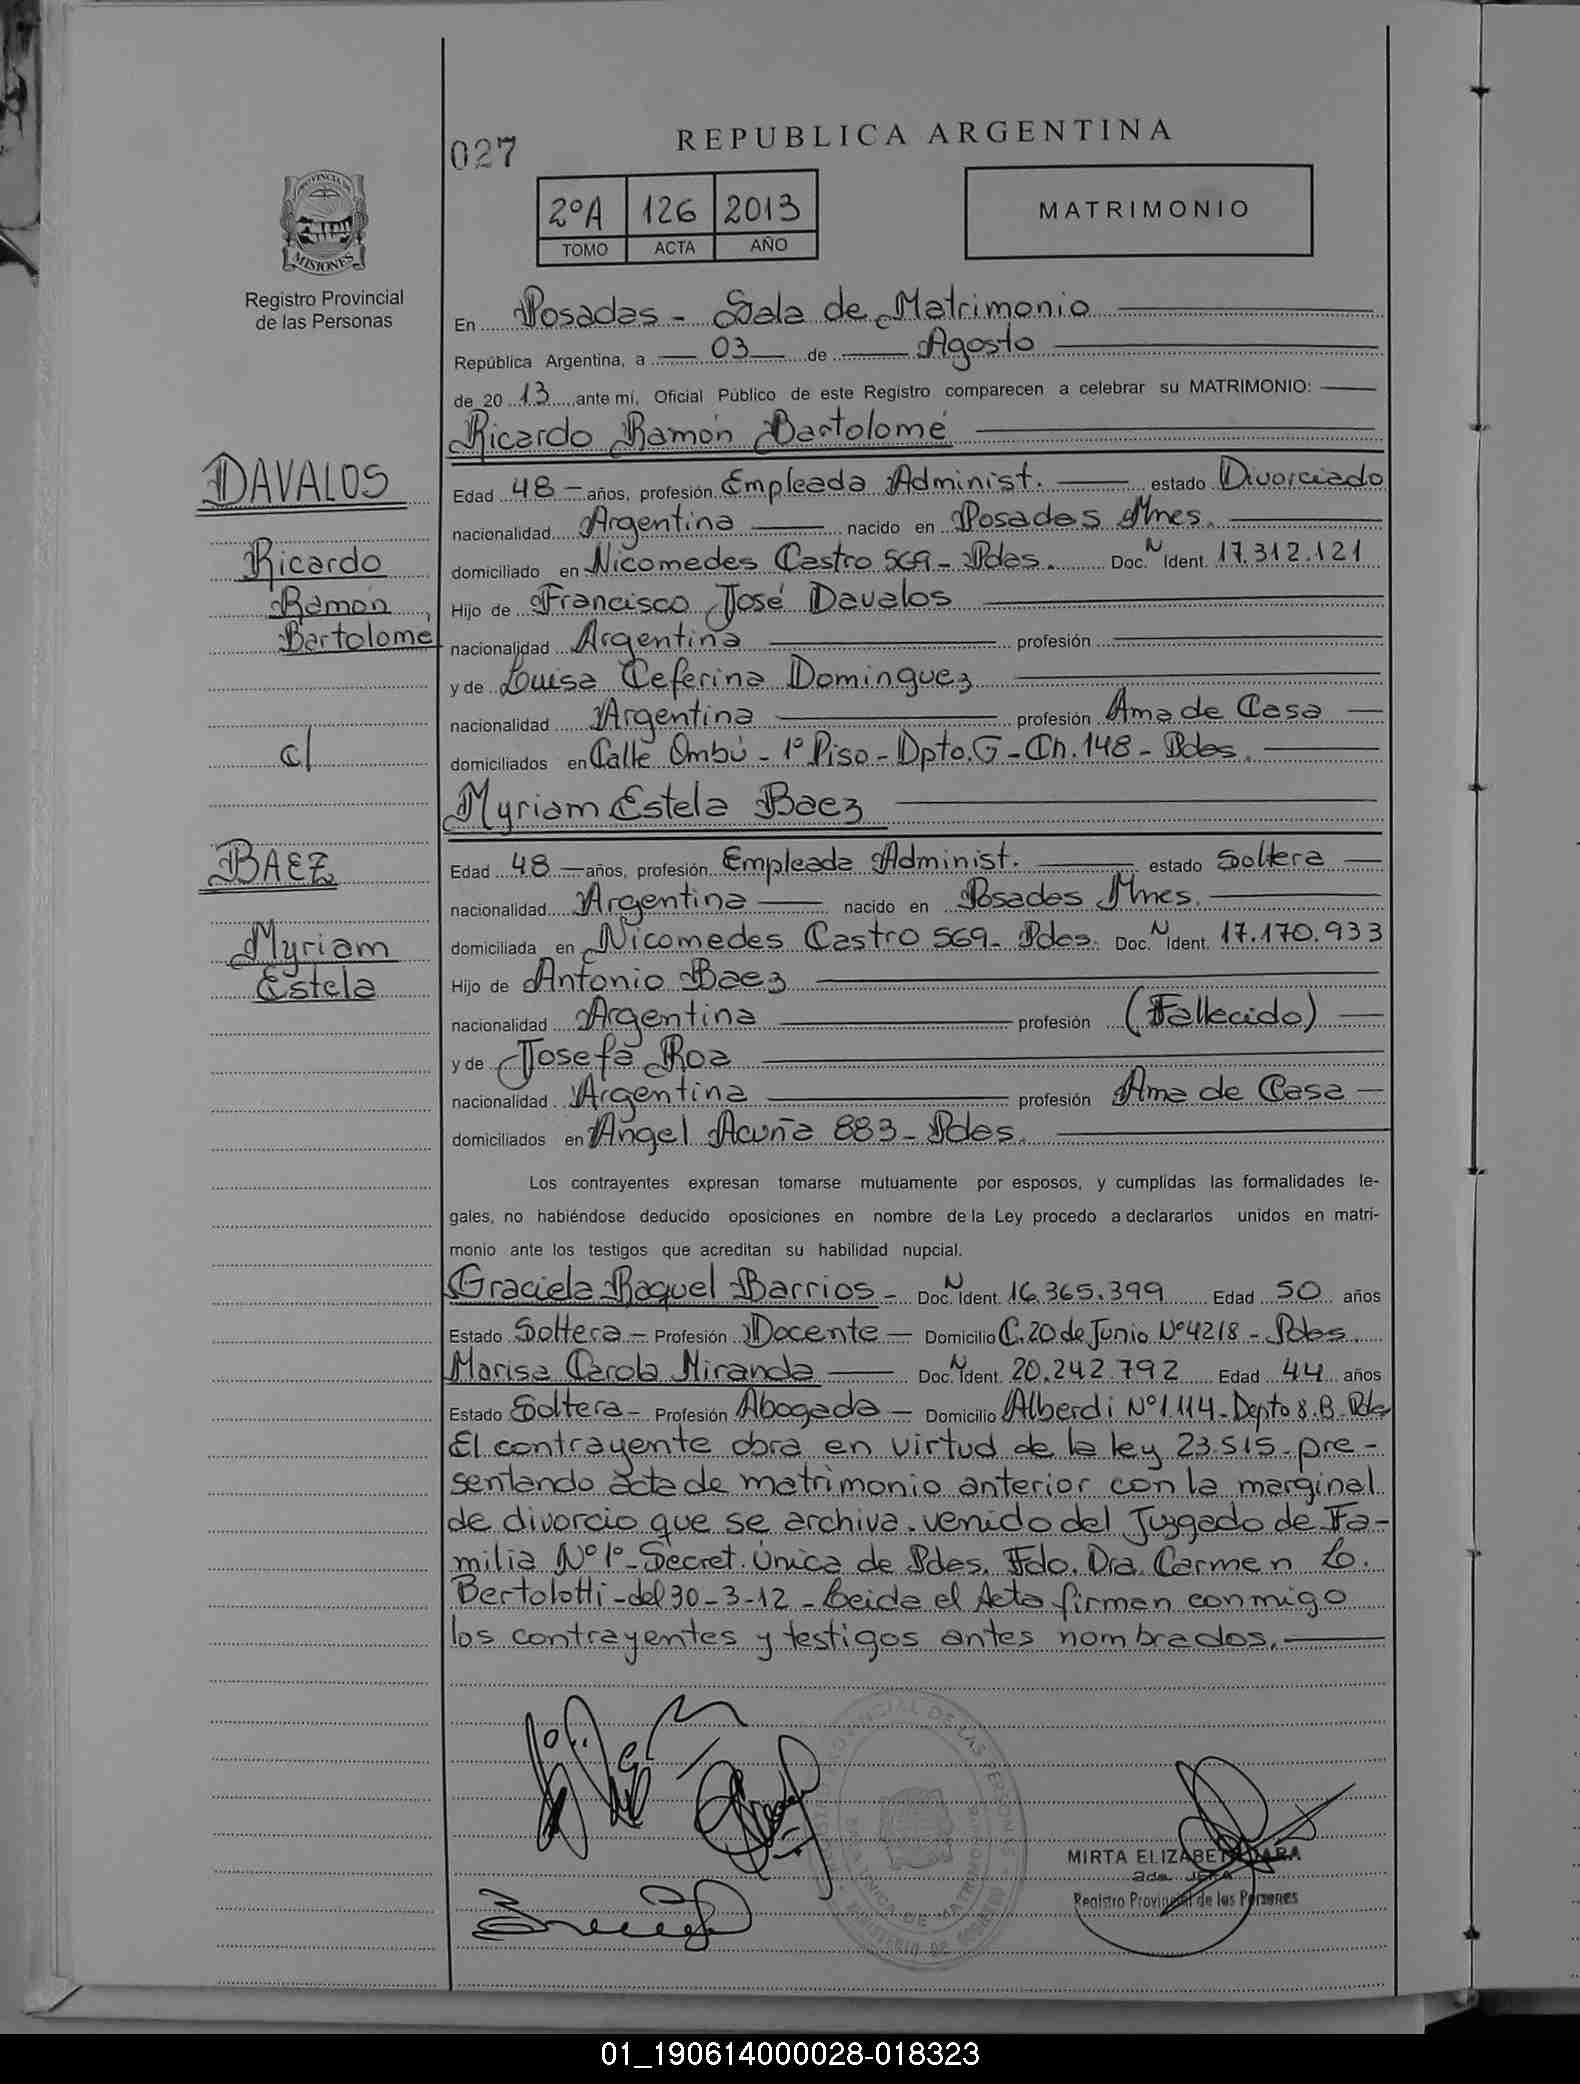 027
REPUBLICA ARGENTINA
2ºA 126 2013
TOMO ACTA AÑO
MATRIMONIO
PROVINCIA DE
MISIONES
Registro Provincial
de las Personas
En Posadas - Sala de Matrimonio
República Argentina, a 03 de Agosto
de 2013, ante mi, Oficial Público de este Registro comparecen a celebrar su MATRIMONIO:
Ricardo Ramón Bartolomé
DAVALOS
Edad 48 - años, profesión Empleada Administ. estado Divorciado
nacionalidad Argentina nacido en Posadas Mnes.
Ricardo
domiciliado en Nicomedes Castro 569 - Pdas. Doc. N Ident. 17.312.121
Ramón
Hijo de Francisco José Davalos
Bartolomé
nacionalidad Argentina profesión
y de Luisa Ceferina Dominguez
nacionalidad Argentina profesión Ama de Casa
c/
domiciliados en Calle Ombú - 1º Piso - Dpto. G - Ch. 148 - Pdas.
Myriam Estela Baez
BAEZ
Edad 48 - años, profesión Empleada Administ. estado Soltera
nacionalidad Argentina nacido en Posadas Mnes.
Myriam
domiciliada en Nicomedes Castro 569 - Pdas. Doc. N Ident. 17.170.933
Estela
Hijo de Antonio Baez
nacionalidad Argentina profesión (Fallecido)
y de Josefa Roa
nacionalidad Argentina profesión Ama de Casa
domiciliados en Angel Acuña 883 - Pdas.
Los contrayentes expresan tomarse mutuamente por esposos, y cumplidas las formalidades le-
gales, no habiéndose deducido oposiciones en nombre de la Ley procedo a declararlos unidos en matri-
monio ante los testigos que acreditan su habilidad nupcial.
Graciela Raquel Barrios - Doc. N Ident. 16.365.399 Edad 50 años
Estado Soltera - Profesión Docente - Domicilio C. 20 de Junio Nº 4218 - Pdas
Marisa Carola Miranda Doc. N Ident. 20.242.792 Edad 44 años
Estado Soltera - Profesión Abogada - Domicilio Alberdi Nº 1.114 - Depto 8.B - Pdas
El contrayente obra en virtud de la ley 23.515 - pre-
sentando acta de matrimonio anterior con la marginal
de divorcio que se archiva. venido del Juzgado de Fa-
milia Nº 1º - Secret. Única de Pdas. Fdo. Dra. Carmen
Bertolotti - del 30-3-12 - Leida el Acta firman conmigo
los contrayentes y testigos antes nombrados.
PROVINCIAL DE LAS PERSONAS
MINISTERIO DE GOBIERNO
MIRTA ELIZABETH
2da. JEFA
Registro Provincial de las Personas
01_190614000028-018323